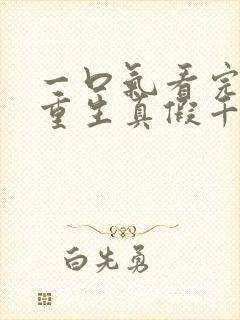 一口氣看完
重生真假千
白先勇